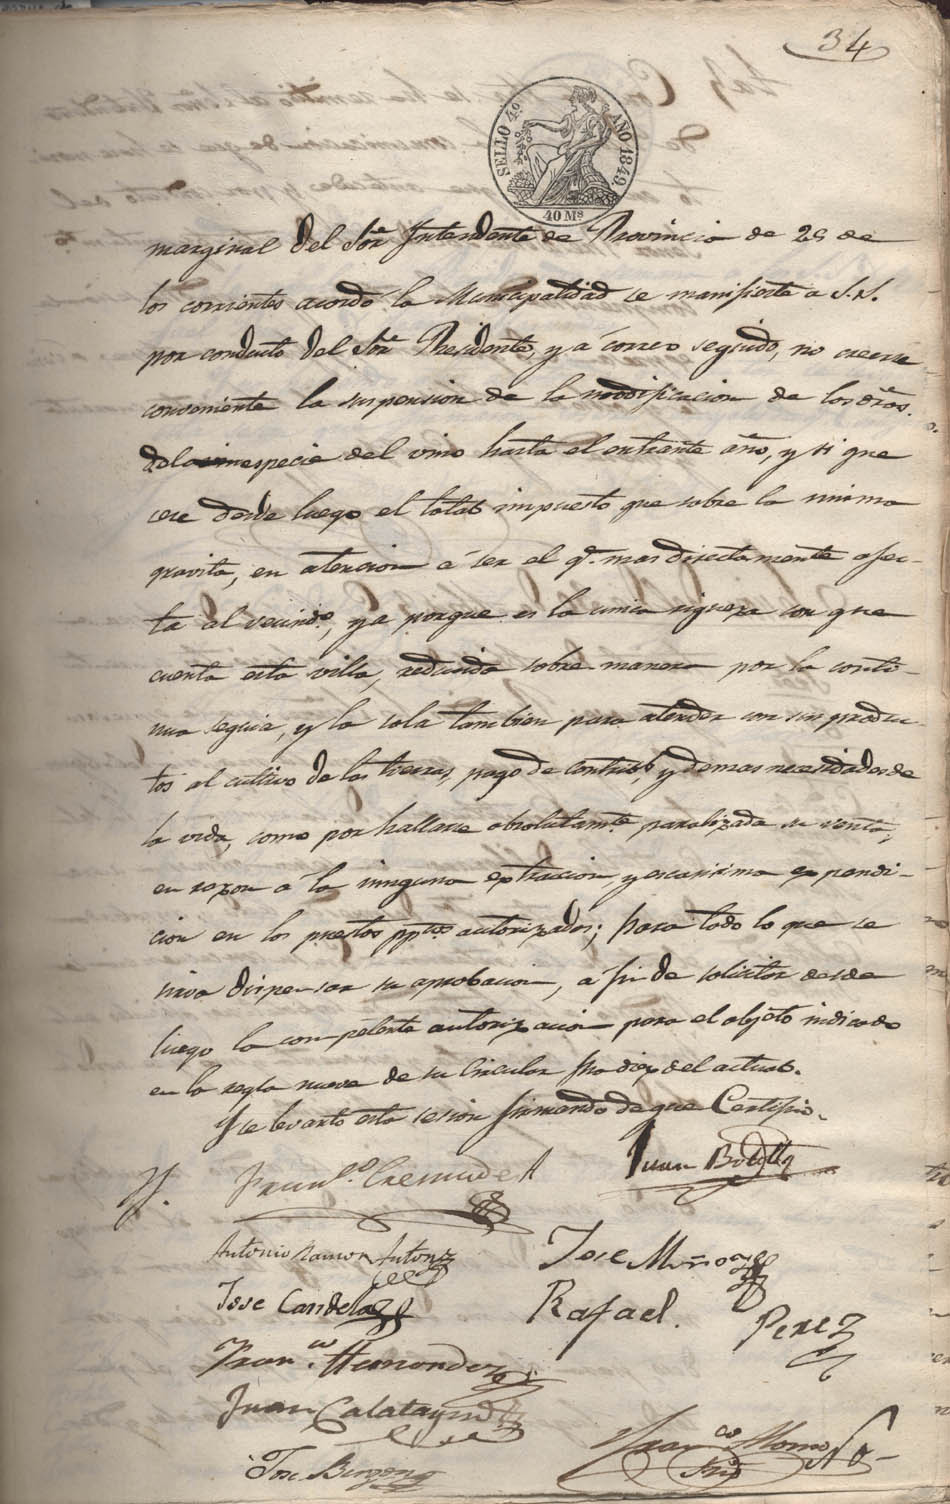 34
SELLO 4º. AÑO 1849.
40 Ms
marginal del Sor. Intendente de Provincia de 25 de
los corrientes acordó la Municipalidad se manifieste a S.S.
por conducto del Sor. Presidente, y á correo seguido, no creerse
conveniente la suspension de la modificacion de los dros.
de la especie del vino hasta el entrante año, y si que
cese desde luego el total impuesto que sobre la misma
gravita, en atencion á ser el q. mas directamente afec-
ta al vecindo., ya porque es la unica riqueza con que
cuenta esta villa, reducida sobre manera por la conti-
nua sequia, y la sola tambien para atender con sus produc-
tos al cultivo de las tierras, pago de contribs. y demas necesidades de
la vida, como por hallarse absolutamte. paralizada su venta,
en razon á la ninguna extraccion, y escasisima expendi-
cion en los puestos ppcos. autorizados; para todo lo que se
sirva dispensar su aprobacion, a fin de solicitar desde
luego la competente autorizacion para el objeto indicado
en la regla nueve de su Circular fha diez del actual.
Y se levantó esta sesion firmando de que Certifico.
Franco. Cremades
Juan Botella
Antonio Ramon Anton
Jose Muñoz
Jose Candela
Rafael. Perez
Franco. Hernandez
Juan Calatayud
Jose
Franco.
Srio